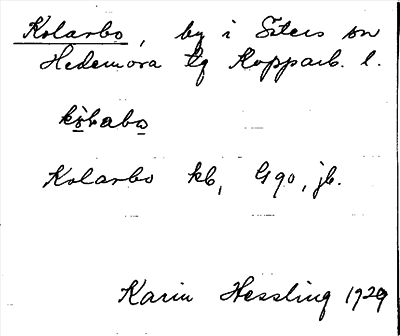 Kolarbo, by i Säters sn
Hedemora tg Kopparb. l.
Kolarbo kb, G 90, jb.
Karin Hessling 1929